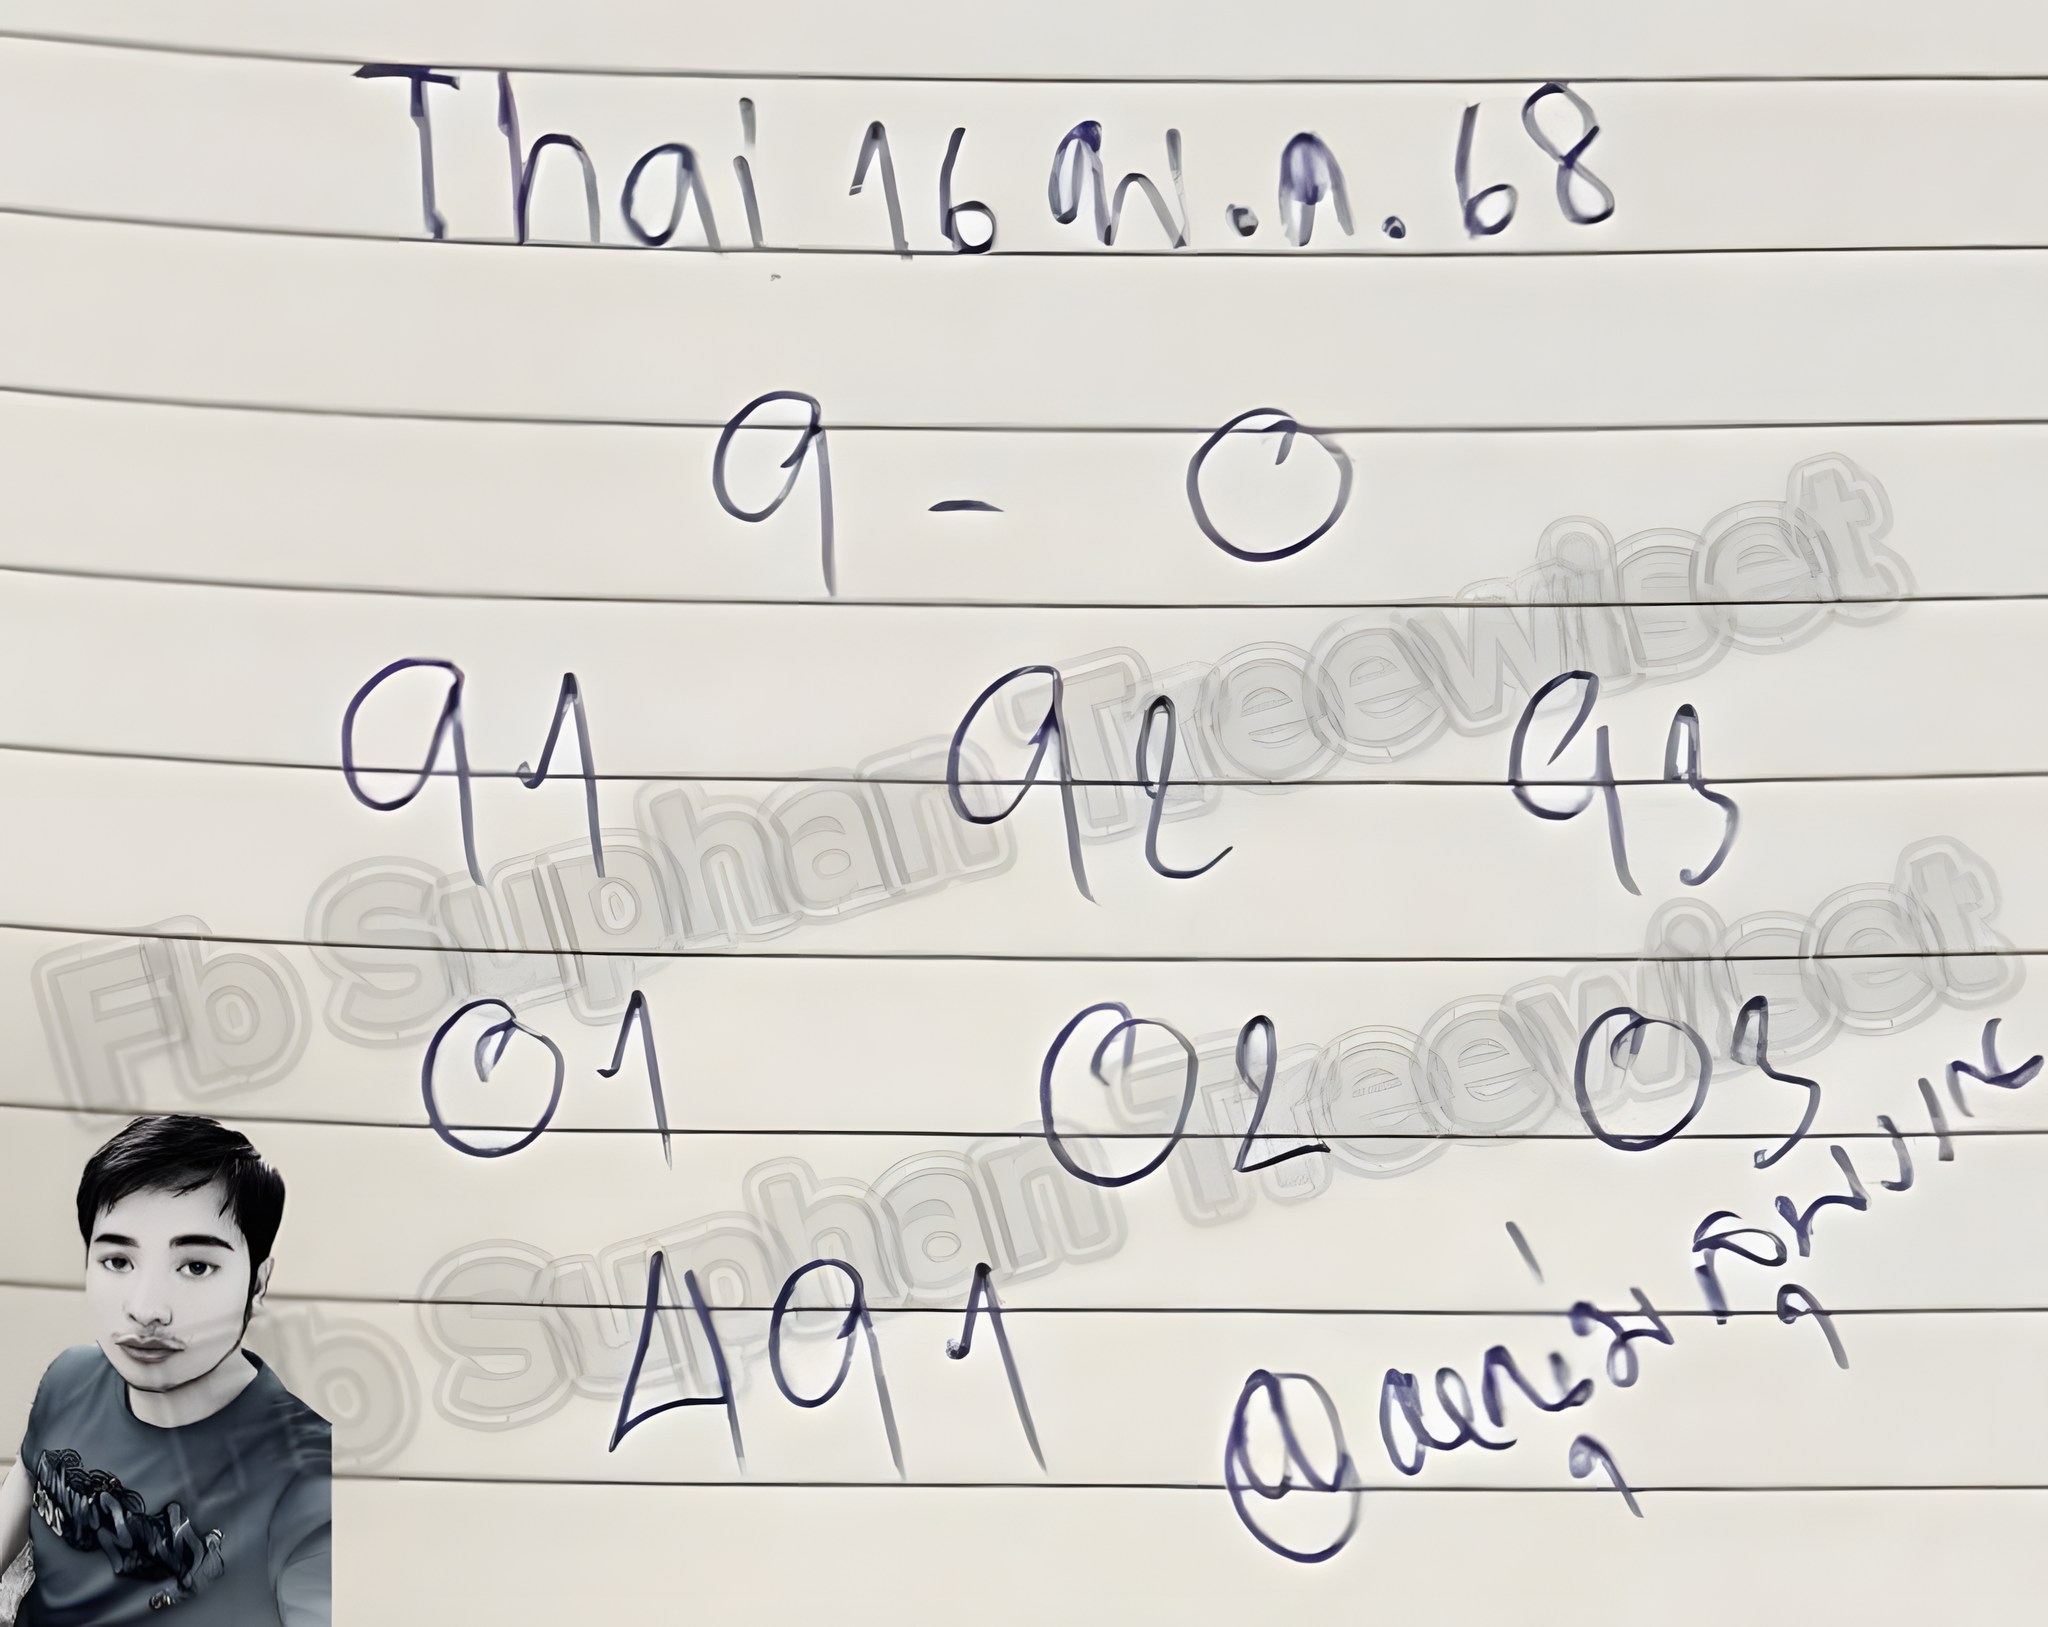 Thai 16 พ.ค. 68
9 - 0
91 92 93
01 02 03
491
Fb Suphan Treewiset
Fb Suphan Treewiset